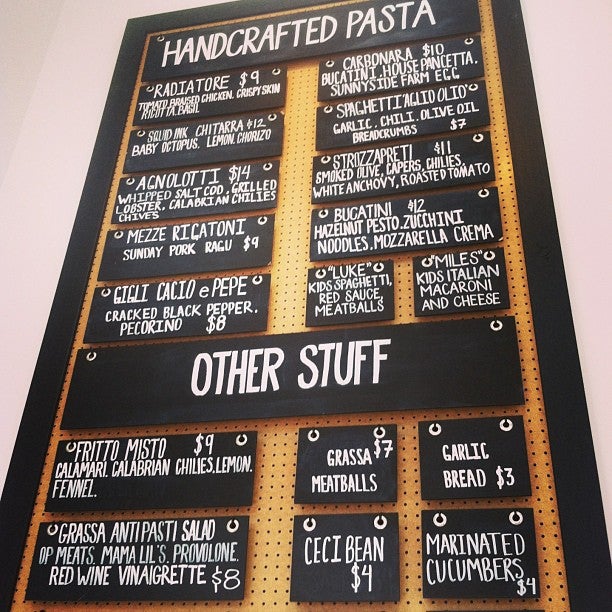 HANDCRAFTED PASTA
RADIATORE $9
TOMATO BRAISED CHICKEN, CRISPY SKIN
RICOTTA, BASIL
SQUID INK CHITARRA $12
BABY OCTOPUS, LEMON, CHORIZO
AGNOLOTTI $14
WHIPPED SALT COD, GRILLED
LOBSTER, CALABRIAN CHILIES
CHIVES
MEZZE RIGATONI
SUNDAY PORK RAGU $9
GIGLI CACIO e PEPE
CRACKED BLACK PEPPER,
PECORINO $8
CARBONARA $10
BUCATINI, HOUSE PANCETTA,
SUNNYSIDE FARM EGG
SPAGHETTI AGLIO OLIO
GARLIC, CHILI, OLIVE OIL
BREADCRUMBS $7
STROZZAPRETI $11
SMOKED OLIVE, CAPERS, CHILIES,
WHITE ANCHOVY, ROASTED TOMATO
BUCATINI $12
HAZELNUT PESTO, ZUCCHINI
NOODLES, MOZZARELLA CREMA
"LUKE"
KIDS SPAGHETTI,
RED SAUCE,
MEATBALLS
"MILES"
KIDS ITALIAN
MACARONI
AND CHEESE
OTHER STUFF
FRITTO MISTO $9
CALAMARI, CALABRIAN CHILIES, LEMON,
FENNEL.
GRASSA $7
MEATBALLS
GARLIC
BREAD $3
GRASSA ANTIPASTI SALAD
OP MEATS, MAMA LIL'S, PROVOLONE,
RED WINE VINAIGRETTE $8
CECI BEAN
$4
MARINATED
CUCUMBERS
$4